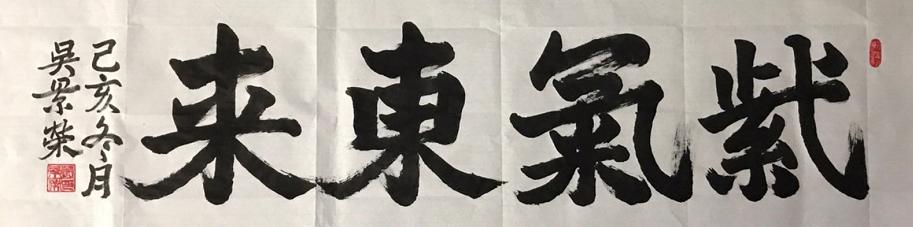 紫氣東来
己亥冬月
吳景榮